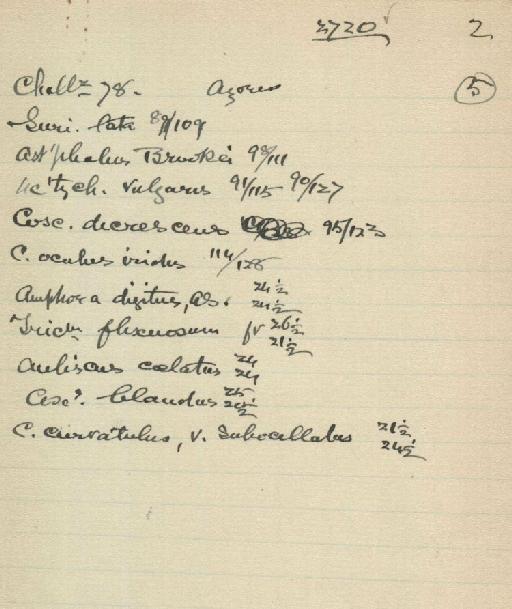 3720 2
Challr 78. Azores 5
Suri. lata 89/109
Ast'phalus Brookei 98/111
tych. vulgaris 91/115 90/127
Cosc. decrescens 95/123
C. oculus iridis 114/128
Amphora digitus, A.S. 24½ 24½
Tricm flexuosum fr 26½ 21½
Auliscus cælatus 24 24
Cosc'. blandus 25 25½
C. curvatulus, v. subocellatus 21½ 24½